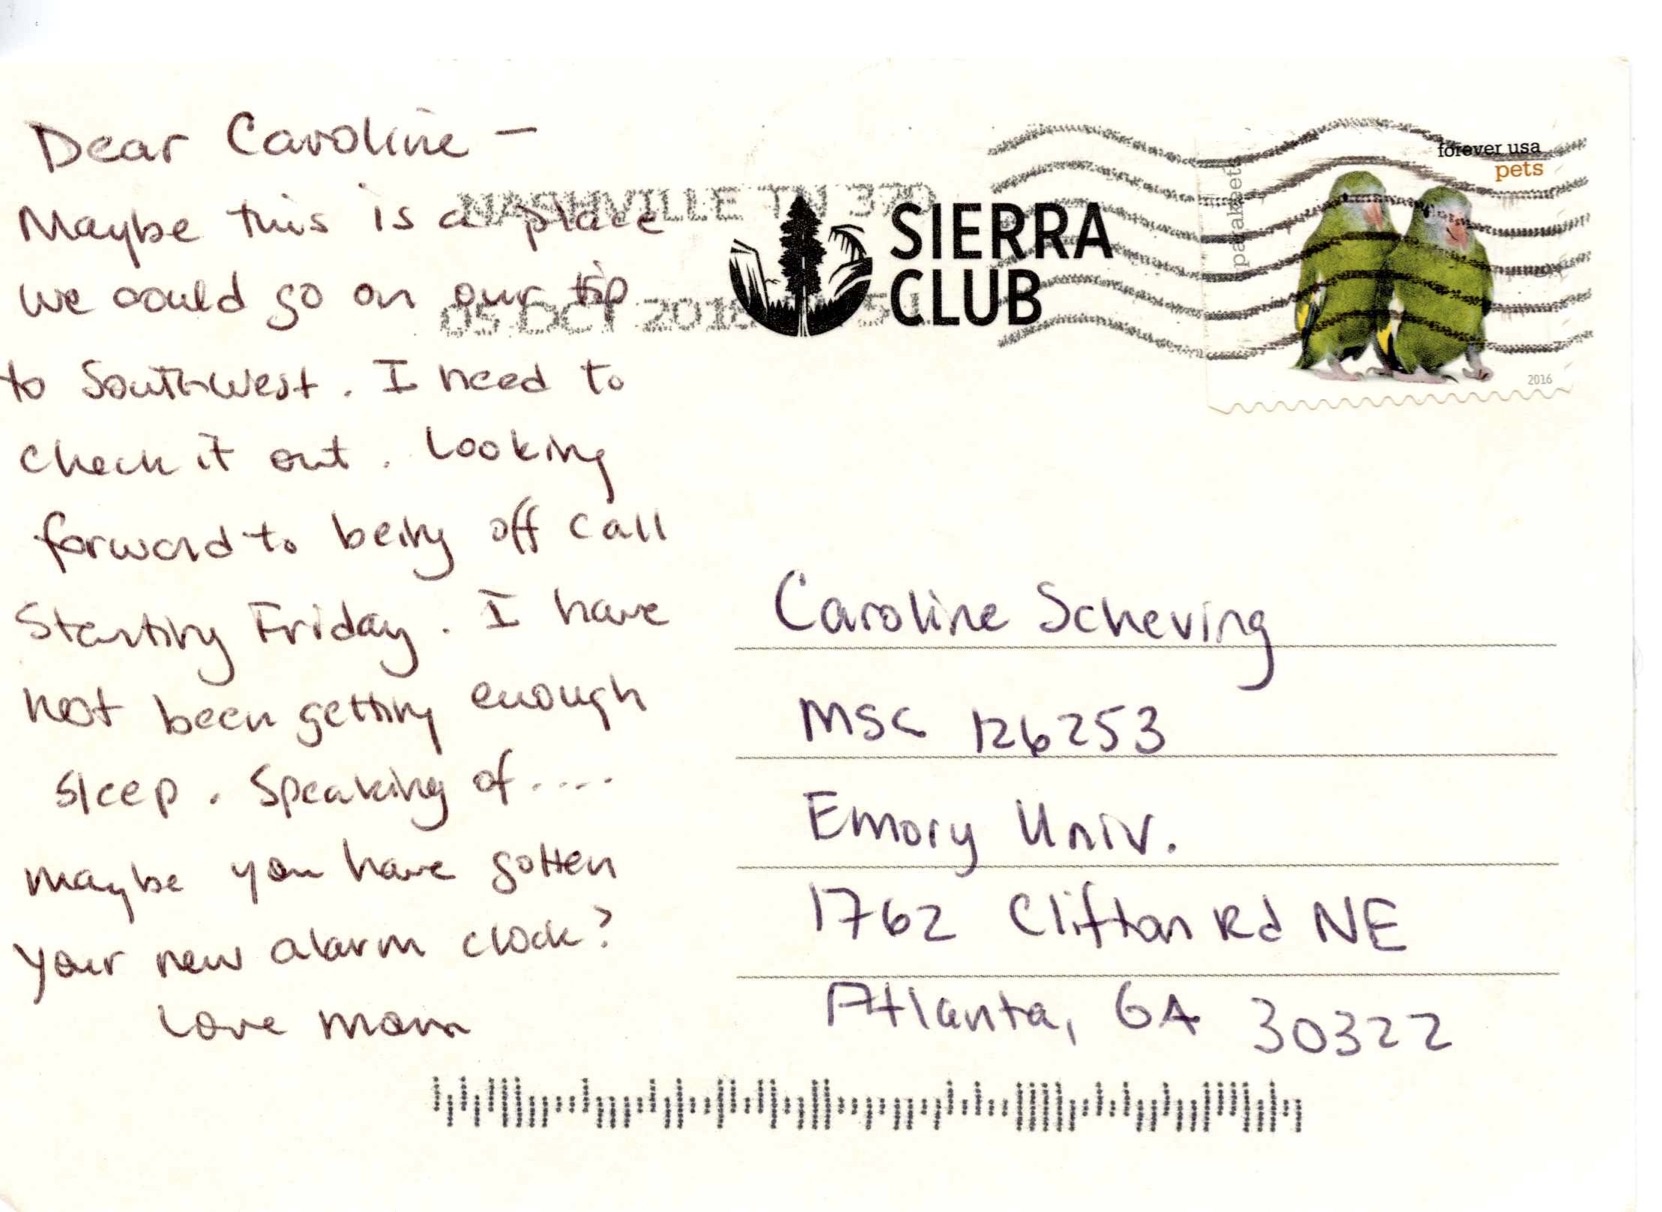 Dear Caroline —
Maybe this is a place
we could go on our trip
to Southwest. I need to
check it out. Looking
forward to being off call
Starting Friday. I have
not been getting enough
sleep. Speaking of....
maybe you have gotten
your new alarm clock?
Love mom
NASHVILLE TN 370
05 OCT 2018
SIERRA
CLUB
forever usa
pets
parakeets
2016
Caroline Scheving
MSC 126253
Emory Univ.
1762 Clifton Rd NE
Atlanta, GA 30322